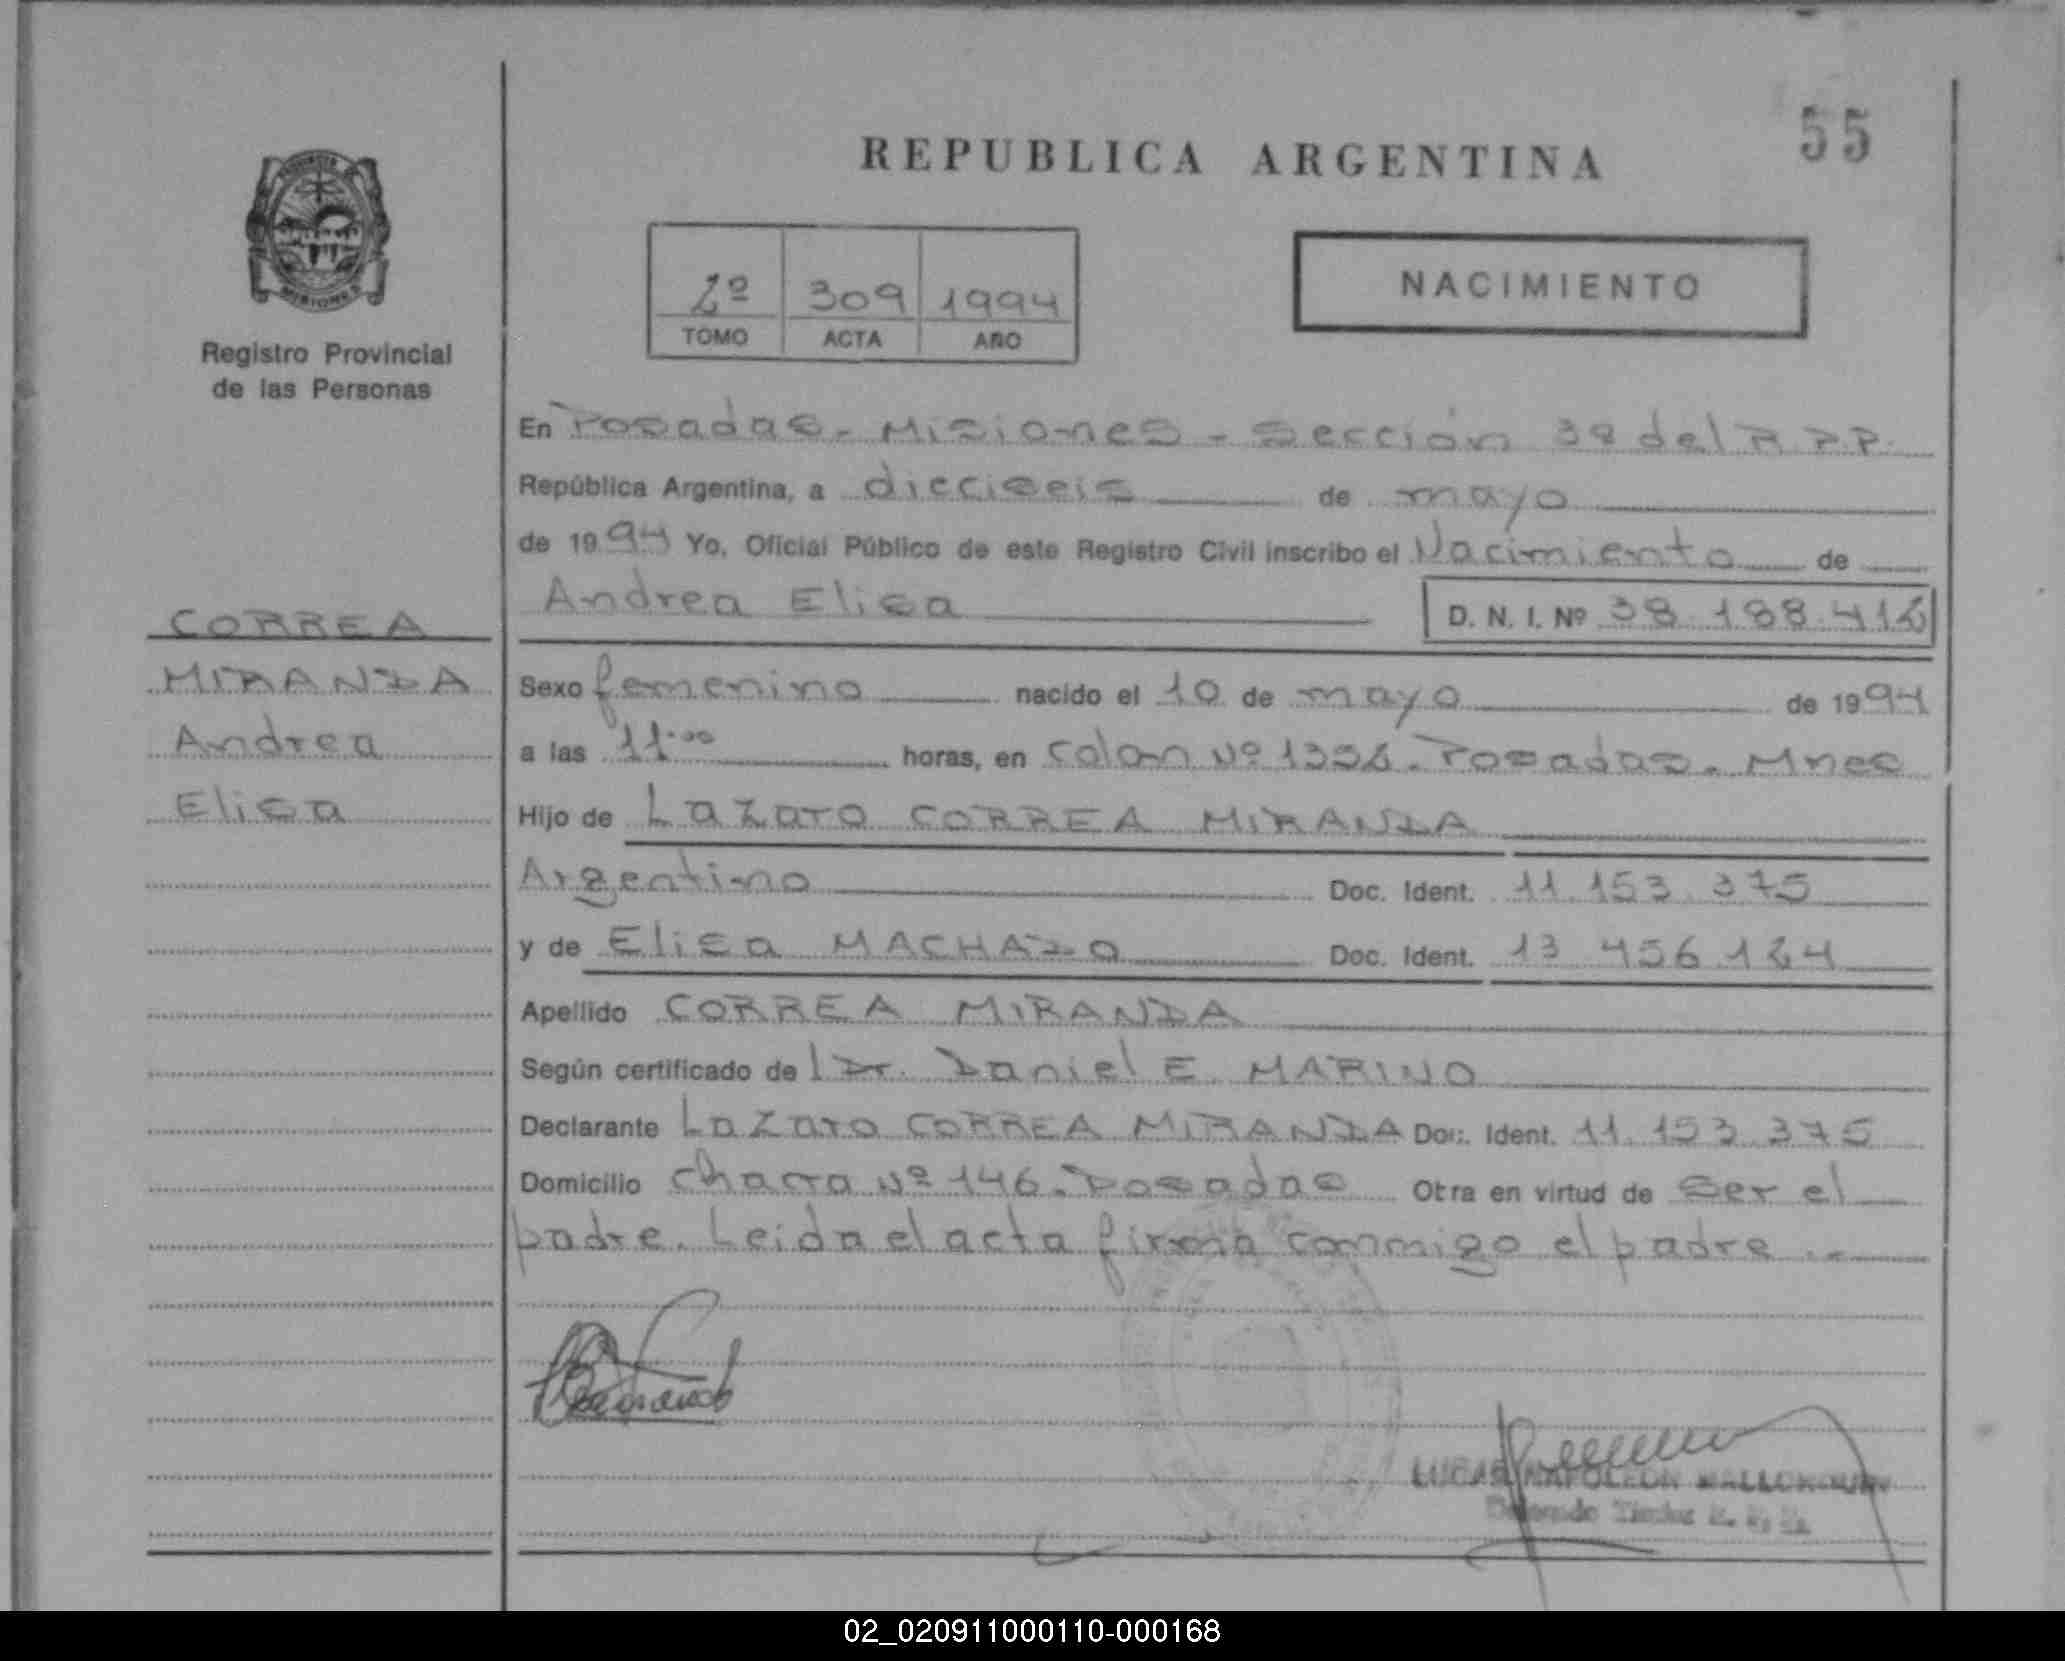 55
REPUBLICA ARGENTINA
PROVINCIA
MISIONES
Registro Provincial
de las Personas
2º 309 1994
TOMO ACTA AÑO
NACIMIENTO
En Posadas - Misiones - Sección 3ª del R.P.P.
República Argentina, a dieciseis de mayo
de 1994 Yo, Oficial Público de este Registro Civil inscribo el Nacimiento de
Andrea Elisa D. N. I. Nº 38.188.412
CORREA
MIRANDA
Andrea
Elisa
Sexo femenino nacido el 10 de mayo de 1994
a las 11:00 horas, en Colon Nº Posadas. Mnes
Hijo de Lazaro CORREA MIRANDA
Argentino Doc. Ident. 11.153.375
y de Elisa MACHADO Doc. Ident. 13.456.124
Apellido CORREA MIRANDA
Según certificado del Dr. Daniel E. MARINO
Declarante Lazaro CORREA MIRANDA Doc. Ident. 11.153.375
Domicilio Chacra Nº 146. Posadas Otra en virtud de ser el
padre. Leida el acta firma conmigo el padre.-
LUCAS NAPOLEON
Titular
02_020911000110-000168